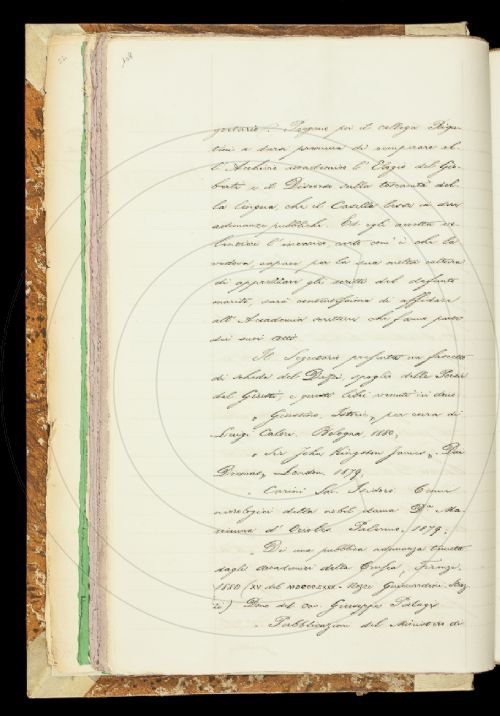 108
gretario. Propone poi il collega Rigu-
tini a dura premura di recuperare al-
l'Archivio accademico l'Elogio del Gio-
berti e il Discorso sulla toscanità del-
la lingua, che il Casella lesse in due
adunanze pubbliche. Ed egli accetta vo-
lentieri l'incarico, certo com'è che la
vedova, capace per la sua molta cultura
di apprezzare gli scritti del defunto
marito, sarà contentissima di affidare
all'Accademia scritture che fanno parte
dei suoi
Il Segretario presenta un fascetto
di schede del Dazzi, spoglio delle Poesie
del Giusti, e questi libri venuti in dono
" Giustino, Istorie, per cura di
Luigi Calori. Bologna, 1880,
" Sir John Kingston James,
London, 1879.
" Carini Sac. Isidoro Cenni
necrologici della nobil donna D.a Ma-
rianna d' Palermo, 1879;
" Di una pubblica adunanza tenuta
dagli accademici della Crusca, Firenze,
1880 (XX del Nozze Guicciardini-Stroz
zi) Dono del cav. Giuseppe Palagi
" Pubblicazioni del Ministero di